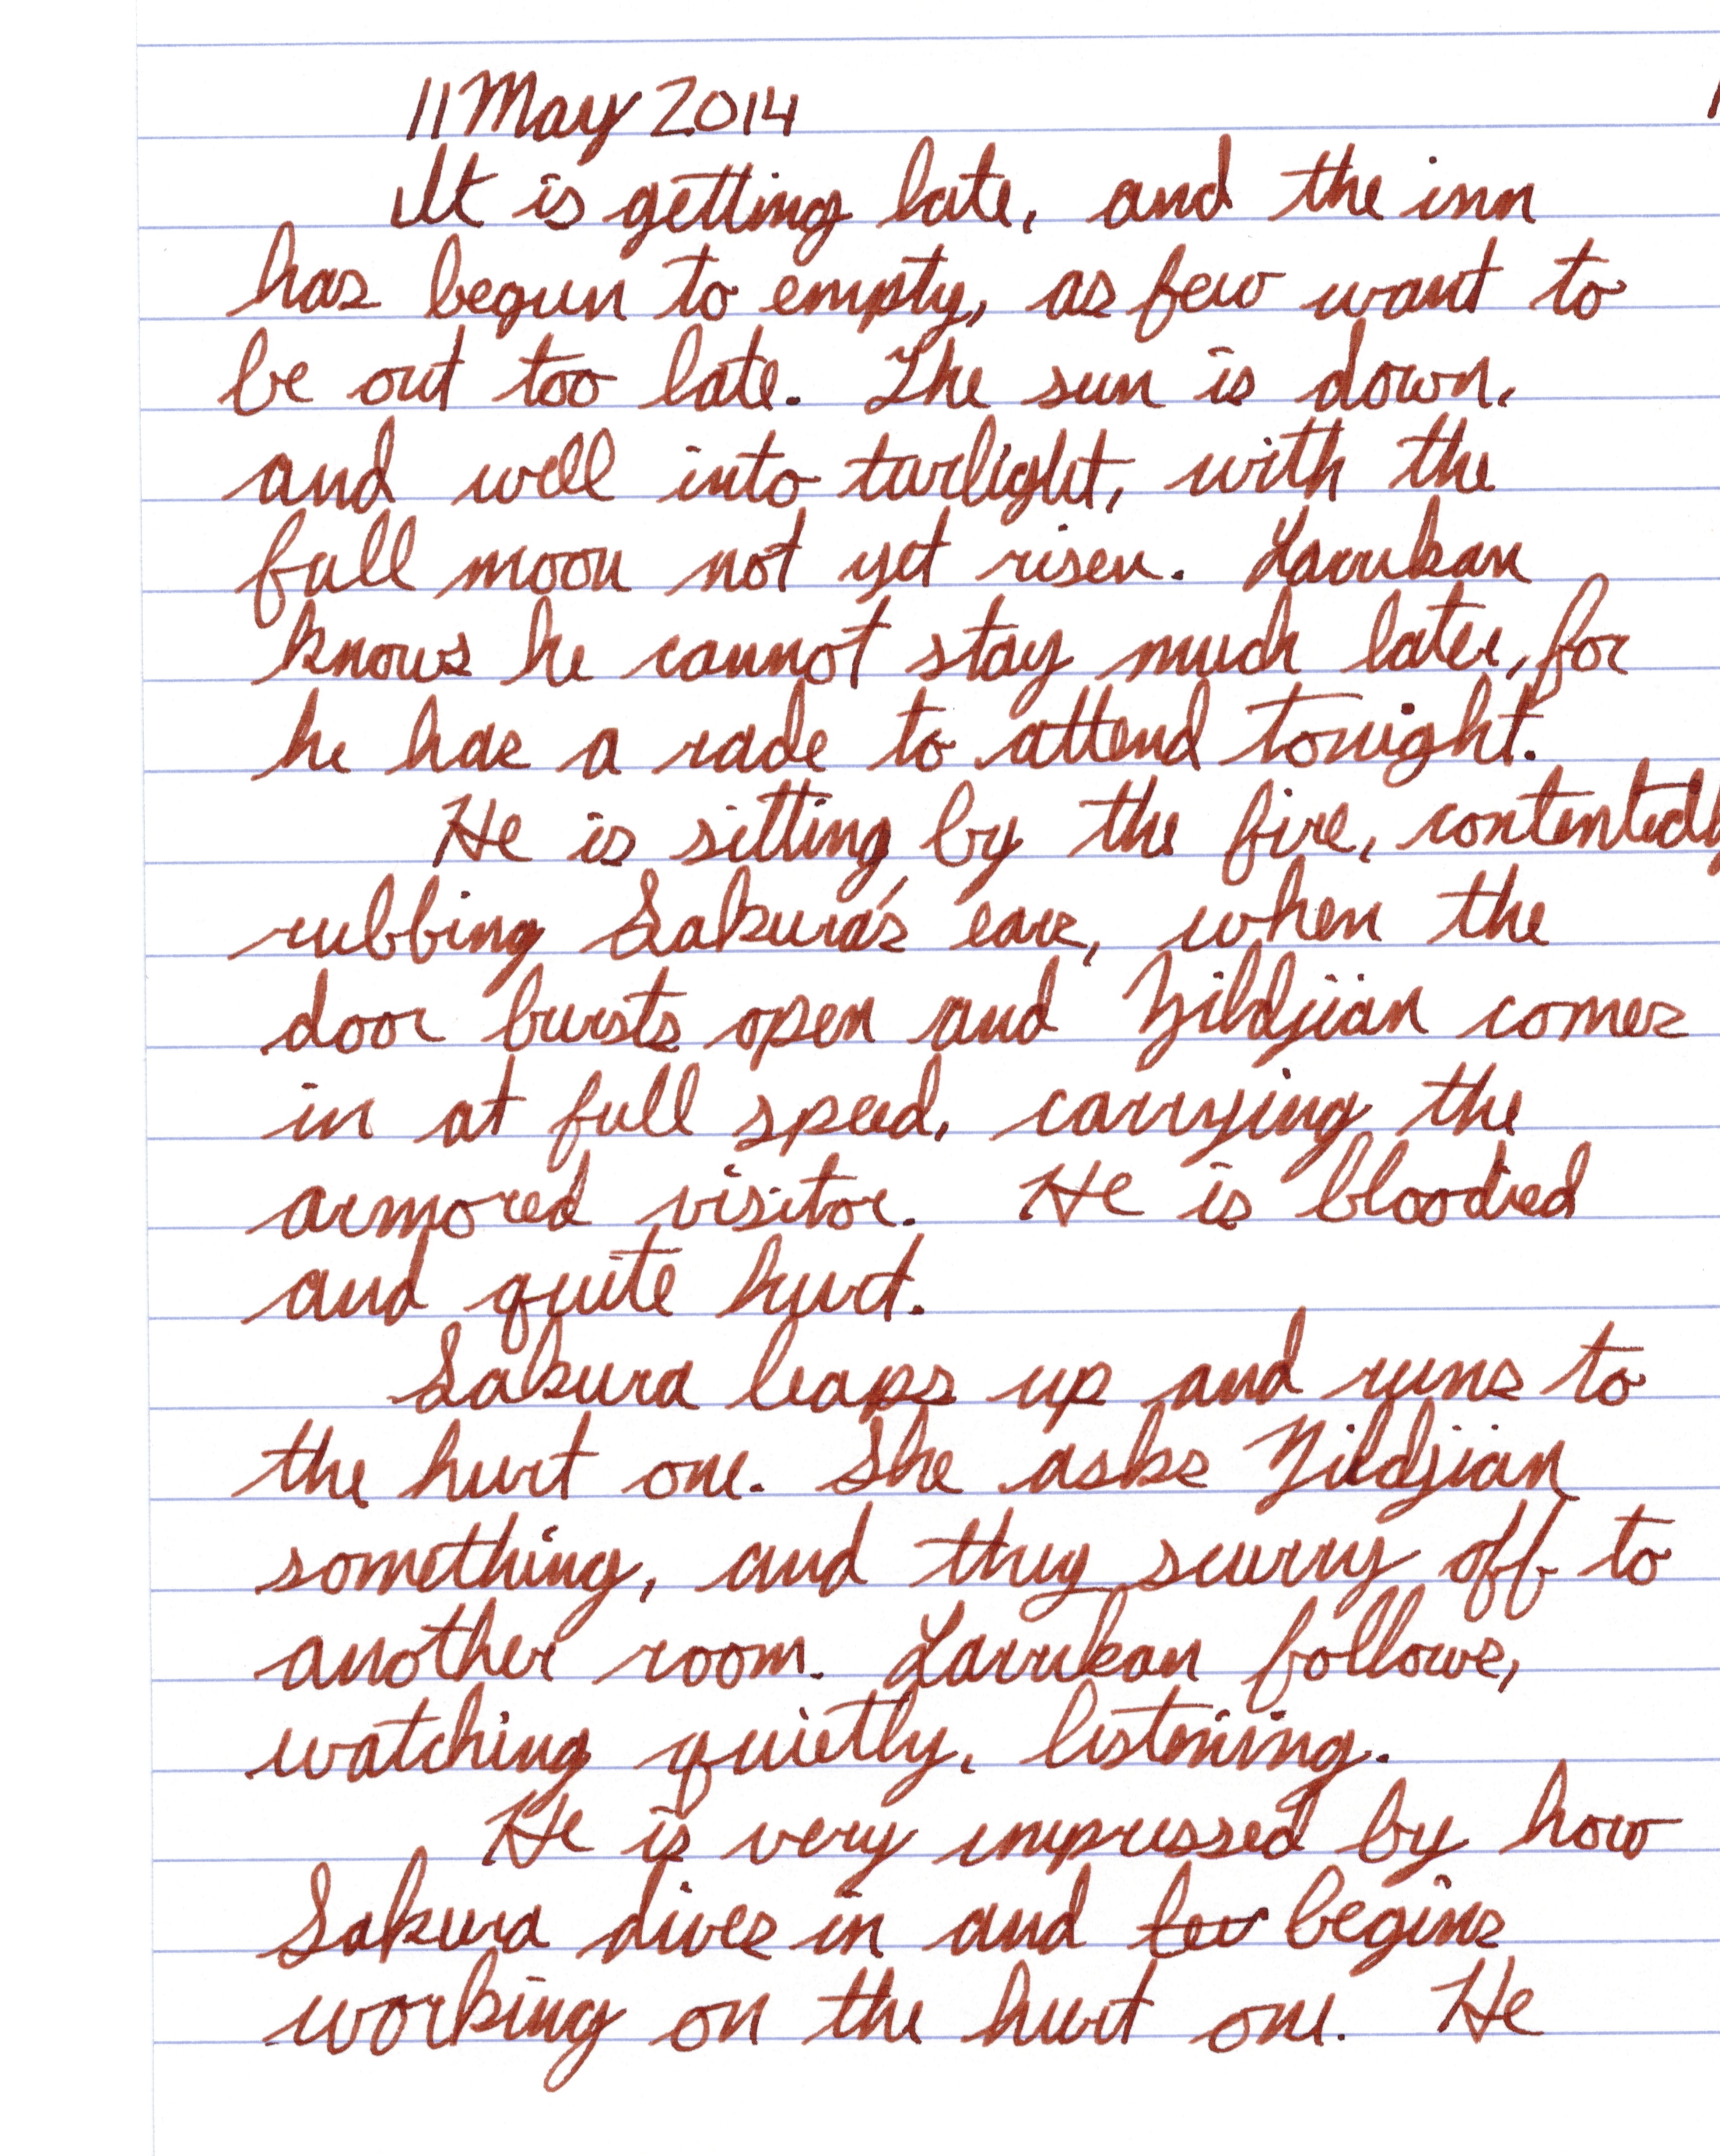 11 May 2014
It is getting late, and the inn
has begun to empty, as few want to
be out too late. The sun is down,
and well into twilight, with the
full moon not yet risen. Larrikan
knows he cannot stay much later, for
he has a rade to attend tonight.
He is sitting by the fire, contentedly
rubbing Sakura's ears, when the
door bursts open and Zildjiian comes
in at full speed, carrying the
armored visitor. He is bloodied
and quite hurt.
Sakura leaps up and runs to
the hurt one. She asks Zildjian
something, and they scurry off to
another room. Larrikan follows,
watching quietly, listening.
He is very impressed by how
Sakura dives in and begins
working on the hurt one. He